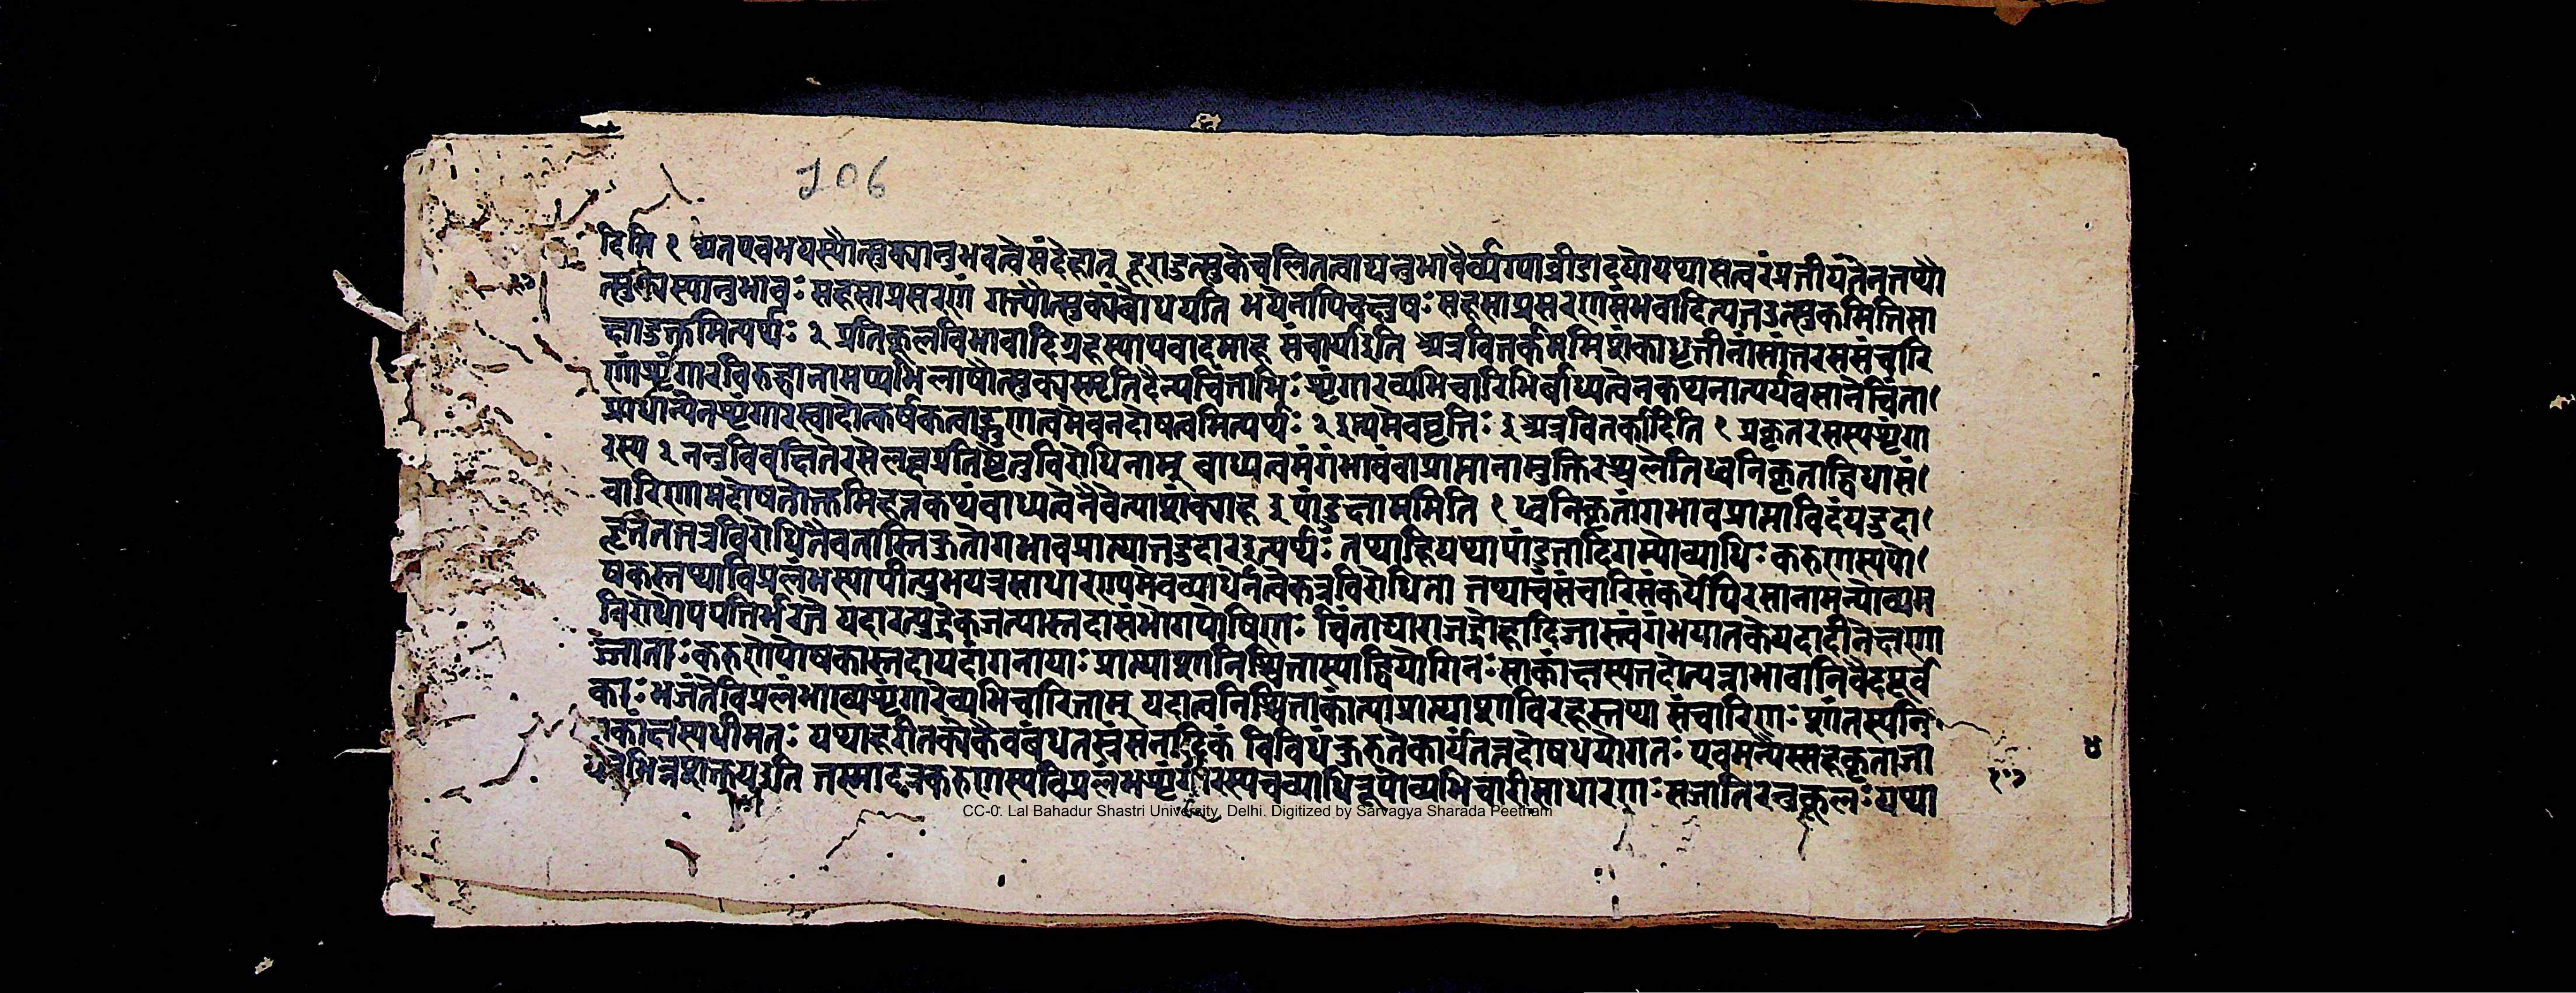 106
दिति १ अतएवभयस्यौत्सुक्यानुभवत्वेसंदेहात् दूराडुत्सुकेचलितत्वाद्यनुभावैर्व्यग्याव्रीडादयोयथासत्वरंप्रतीयंतेनतथौ
त्सुक्यस्यानुभावः सहसाप्रसरणं गत्यौत्सुक्यंबोधयति भयेनापिचक्षुषः सहसाप्रसरणसंभवादित्यतउत्सुकमितिसा
क्षाडुक्तमित्यर्थः २ प्रतिकूलविभावादिग्रहस्यापवादमाह संचार्याइति अत्रवितर्कममिशंकाधृतीनांसांतरससंचारि
णांशृंगारविरुद्धानामप्यभिलाषौत्सुक्यस्मृतिदैन्यचिंताभिः शृंगारव्यभिचारिभिर्बाध्यत्वेनकथनात्पर्यवसानेचिंता
प्राधान्येनशृंगारस्वादोत्कर्षकत्वाद्गुणत्वमेवनदोषत्वमित्यर्थः २ इत्थमेववृत्तिः इअत्रवितर्कादिति १ प्रकृतरसस्यशृंगा
रस्य २ ननुविवक्षितेरसेलब्धप्रतिष्ठेतुविरोधिनाम् बाध्यत्वमंगंभावंवाप्राप्तानामुक्तिरछलेतिध्वनिकृताद्विधासं
चारिणामदोषतोक्तमिहतत्कथंबाध्यत्वेनैवेत्याशंक्याह इ पांडुक्षाममिति १ ध्वनिकृतांगभावप्राप्ताविदंयडुदा
हृतंतत्रविरोधितैवनास्तिकुतोंगभावप्राप्त्यातडुदाहरइत्यर्थः तथाहियथापांडुतादिगम्योव्याधिः करुणस्यपो
षकस्तथाविप्रलंभस्यापीत्युभयत्रसाधारणएवव्याधिर्नत्वेकत्रविरोधिता तथाचसंचारिसंकर्येपिरसानामन्योव्यम
विरोधोपपत्तिर्भरते यदारत्युद्रेकजत्यास्तदासंभोगपोषिणः चिंताद्याराजद्रोहादिजास्त्वंगभयातकेयदादीनेक्षण
ज्ञाताः करुणपोषकास्तदायदांगनायाः प्राप्त्याशानिश्चितास्याद्वियोगिनः साकांक्षस्यतदोत्पन्नाभावानिर्वेदपूर्व
काः भजंतेविप्रलंभाख्यशृंगारेव्यभिचारिताम् यदात्वनिश्चिताकांत्याप्राप्त्याशाविरहेस्तथा संचारिणः शांतस्यनि
राकांक्षस्यधीमतः यथाहरीतक्येकैवबंधतस्त्रंसनादिकं विविधंकुरुतेकार्यंतन्नदोषधयोगतः एवमन्यैस्सहकृताजा
येतेभिन्नशक्तयइति तस्मादत्रकरुणस्यविप्रलंभशृंगारस्यचव्याधिरूपोव्यभिचारीसाधारणः सजातिरनुकूलः यथा
CC-0. Lal Bahadur Shastri University, Delhi. Digitized by Sarvagya Sharada Peetham